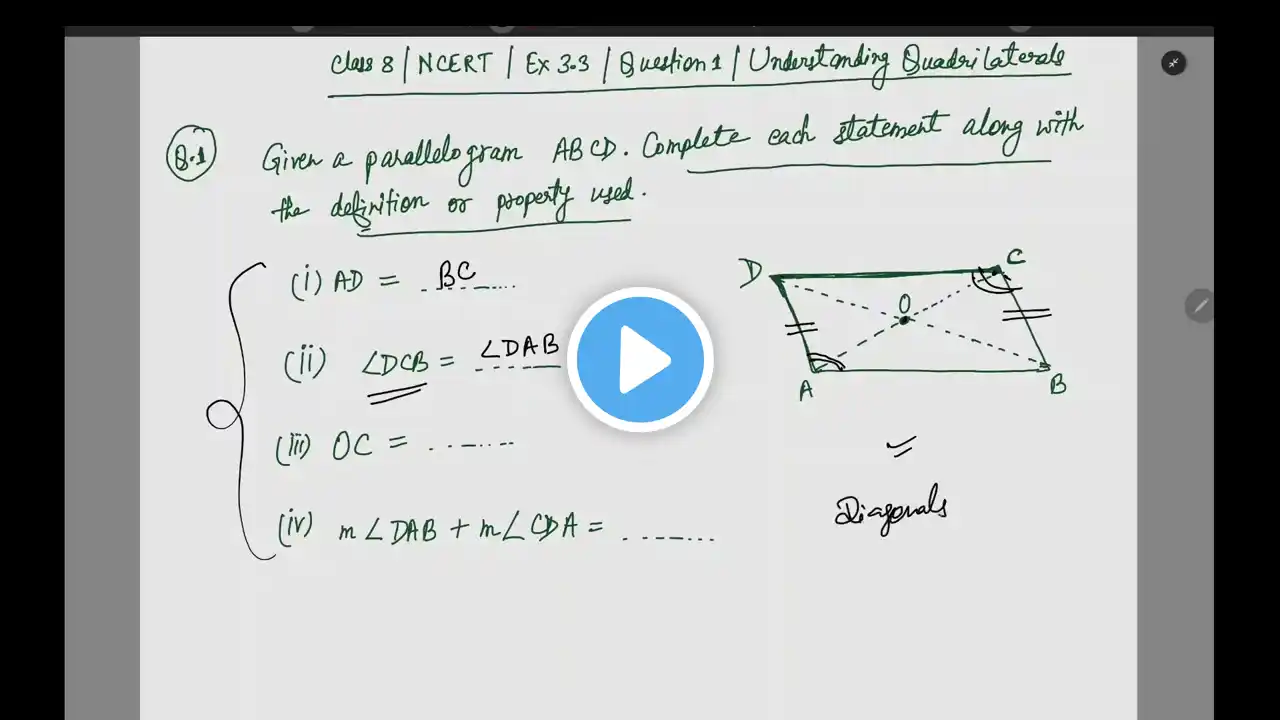 Class 8 | NCERT | Ex 3.3 | Question 1 | Understanding Quadrilaterals
Q.1 Given a parallelogram ABCD. Complete each statement along with
the definition or property used.
(i) AD = BC
(ii) ∠DCB = ∠DAB
(iii) OC = ........
(iv) m∠DAB + m∠CDA = ........
D
C
O
A
B
Diagonals